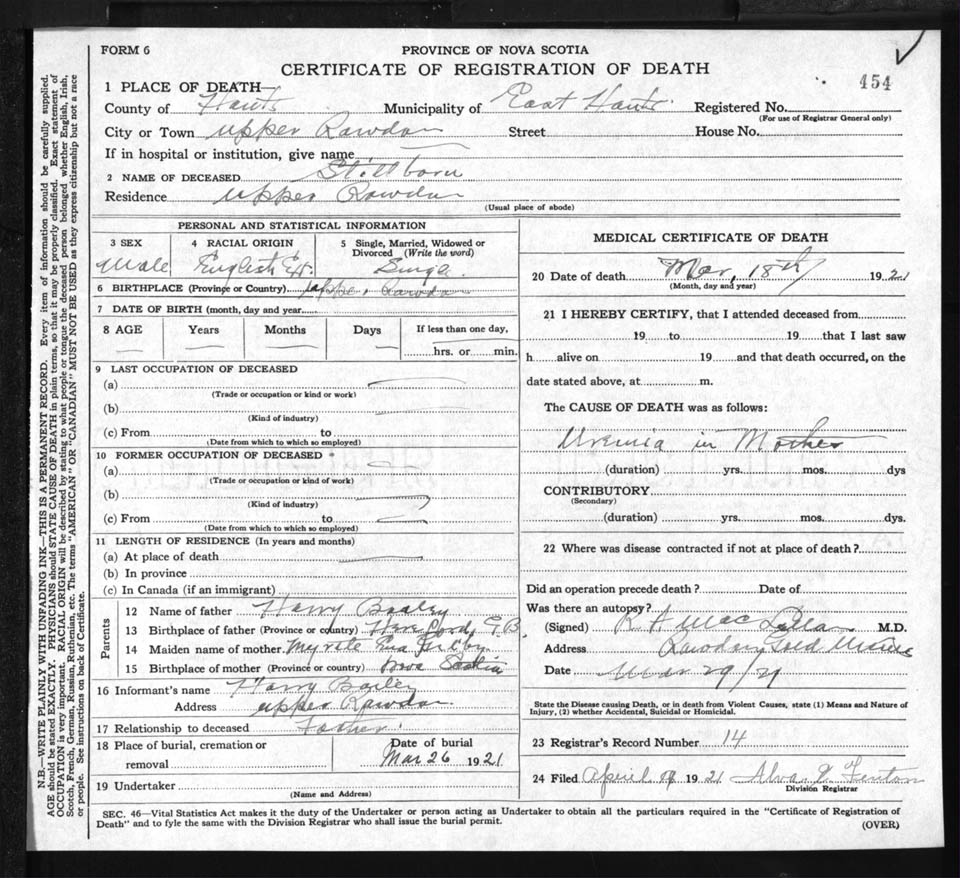 FORM 6
PROVINCE OF NOVA SCOTIA
CERTIFICATE OF REGISTRATION OF DEATH
454
1 PLACE OF DEATH—
County of Hants Municipality of East Hants Registered No.
(For use of Registrar General only)
City or Town Upper Rawdon Street House No.
If in hospital or institution, give name
2 NAME OF DECEASED Stillborn
Residence Upper Rawdon
(Usual place of abode)
PERSONAL AND STATISTICAL INFORMATION
3 SEX 4 RACIAL ORIGIN 5 Single, Married, Widowed or Divorced (Write the word)
Male English
6 BIRTHPLACE (Province or Country) Upper Rawdon
7 DATE OF BIRTH (month, day and year)
8 AGE Years Months Days If less than one day,
hrs. or min.
9 LAST OCCUPATION OF DECEASED
(a)
(Trade or occupation or kind or work)
(b)
(Kind of industry)
(c) From to
(Date from which to which so employed)
10 FORMER OCCUPATION OF DECEASED
(a)
(Trade or occupation or kind of work)
(b)
(Kind of industry)
(c) From to
(Date from which to which so employed)
11 LENGTH OF RESIDENCE (In years and months)
(a) At place of death
(b) In province
(c) In Canada (if an immigrant)
Parents
12 Name of father Harry Bailey
13 Birthplace of father (Province or country) G.B.
14 Maiden name of mother Myrtle
15 Birthplace of mother (Province or country) Nova Scotia
16 Informant's name Harry Bailey
Address Upper Rawdon
17 Relationship to deceased Father
18 Place of burial, cremation or removal Date of burial
Mar 26 1921
19 Undertaker
(Name and Address)
MEDICAL CERTIFICATE OF DEATH
20 Date of death Mar, 18th 1921
(Month, day and year)
21 I HEREBY CERTIFY, that I attended deceased from
19 to 19 that I last saw
h alive on 19 and that death occurred, on the
date stated above, at m.
The CAUSE OF DEATH was as follows:
Uremia in Mother
(duration) yrs. mos. dys
CONTRIBUTORY
(Secondary)
(duration) yrs. mos. dys.
22 Where was disease contracted if not at place of death?
Did an operation precede death? Date of
Was there an autopsy?
(Signed) R A MacLellan M.D.
Address Rawdon Gold Mines
Date Mar 29/21
State the Disease causing Death, or in death from Violent Causes, state (1) Means and Nature of
Injury, (2) whether Accidental, Suicidal or Homicidal.
23 Registrar's Record Number 14
24 Filed April 1921 Alva Fenton
Division Registrar
SEC. 46—Vital Statistics Act makes it the duty of the Undertaker or person acting as Undertaker to obtain all the particulars required in the "Certificate of Registration of
Death" and to fyle the same with the Division Registrar who shall issue the burial permit.
(OVER)
N.B.—WRITE PLAINLY WITH UNFADING INK—THIS IS A PERMANENT RECORD. Every item of information should be carefully supplied.
AGE should be stated EXACTLY. PHYSICIANS should STATE CAUSE OF DEATH in plain terms, so that it may be properly classified. Exact statement of
OCCUPATION is very important. RACIAL ORIGIN will be described by stating to what people or tongue the deceased person belonged whether English, Irish,
Scotch, French, German, Russian, Ruthenian, etc. The terms "AMERICAN" OR "CANADIAN" MUST NOT BE USED as they express citizenship but not a race
or people. See instructions on back of Certificate.